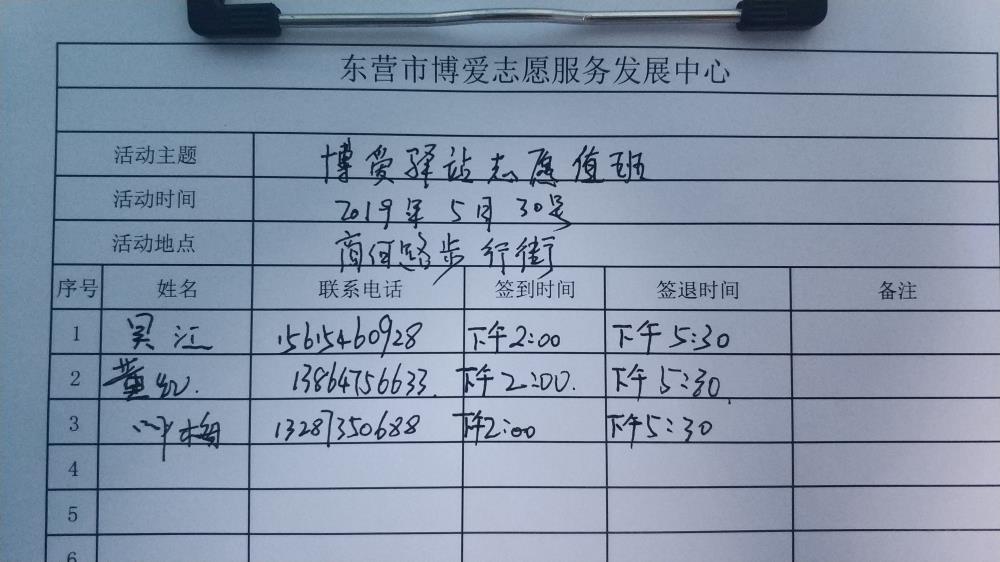 东营市博爱志愿服务发展中心
活动主题 博爱驿站志愿值班
活动时间 2019年5月30号
活动地点 商河路步行街
序号 姓名 联系电话 签到时间 签退时间 备注
1 吴江 15615460928 下午2:00 下午5:30
2 董红. 13864756633. 下午2:00. 下午5:30.
3 梅 13287350688 下午2:00 下午5:30
4
5
6